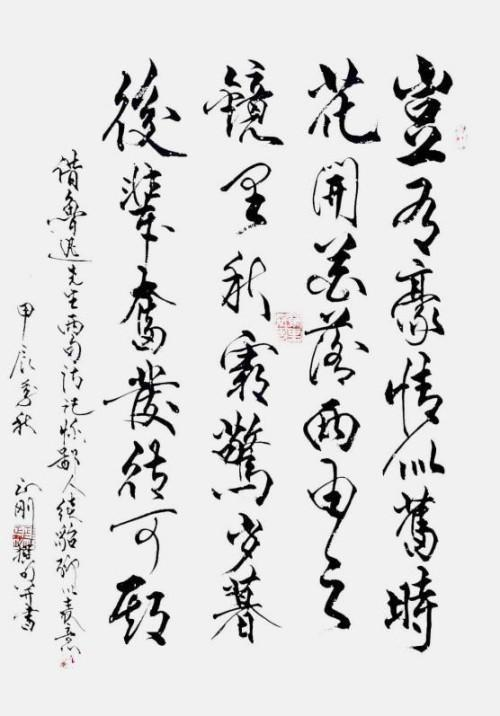 豈有豪情似舊時
花開花落兩由之
鏡里秋霜驚岁暮
後輩奮發待可期
借魯迅先生兩句詩記懷鄙人續貂聊以表意
甲辰季秋
正刚撰句并書